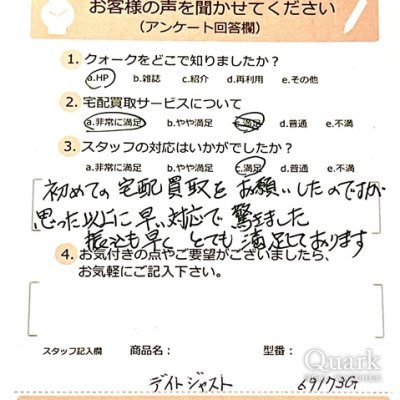 お客様の声を聞かせてください
（アンケート回答欄）
1. クォークをどこで知りましたか？
a.HP b.雑誌 c.紹介 d.再利用 e.その他
2. 宅配買取サービスについて
a.非常に満足 b.やや満足 c.満足 d.普通 e.不満
3. スタッフの対応はいかがでしたか？
a.非常に満足 b.やや満足 c.満足 d.普通 e.不満
初めての宅配買取をお願いしたのですが
思った以上に早い対応で驚きました
振込も早くとても満足しております
4. お気付きの点やご要望がございましたら、
お気軽にご記入下さい。
スタッフ記入欄 商品名： 型番：
デイトジャスト 69173G
Quark